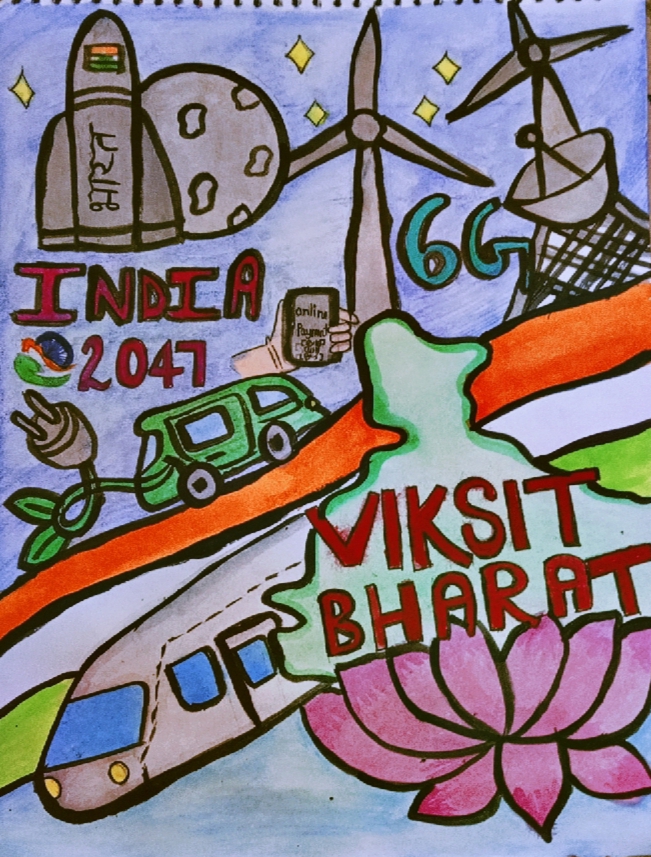 भारत
6G
INDIA
2047
online
VIKSIT
BHARAT